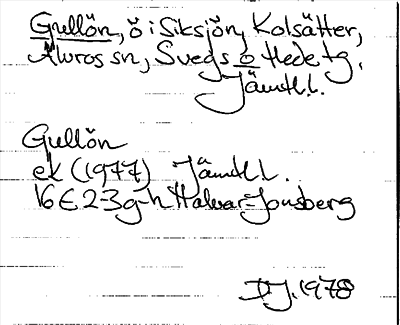 Gullön, ö i Siksjön, Kolsätter,
Älvros sn, Svegs o Hede tg,
Jämtl.l.
Gullön
ek (1977) Jämtl.l.
16E 2-3g-h Halvar Jonsberg
D J. 1978